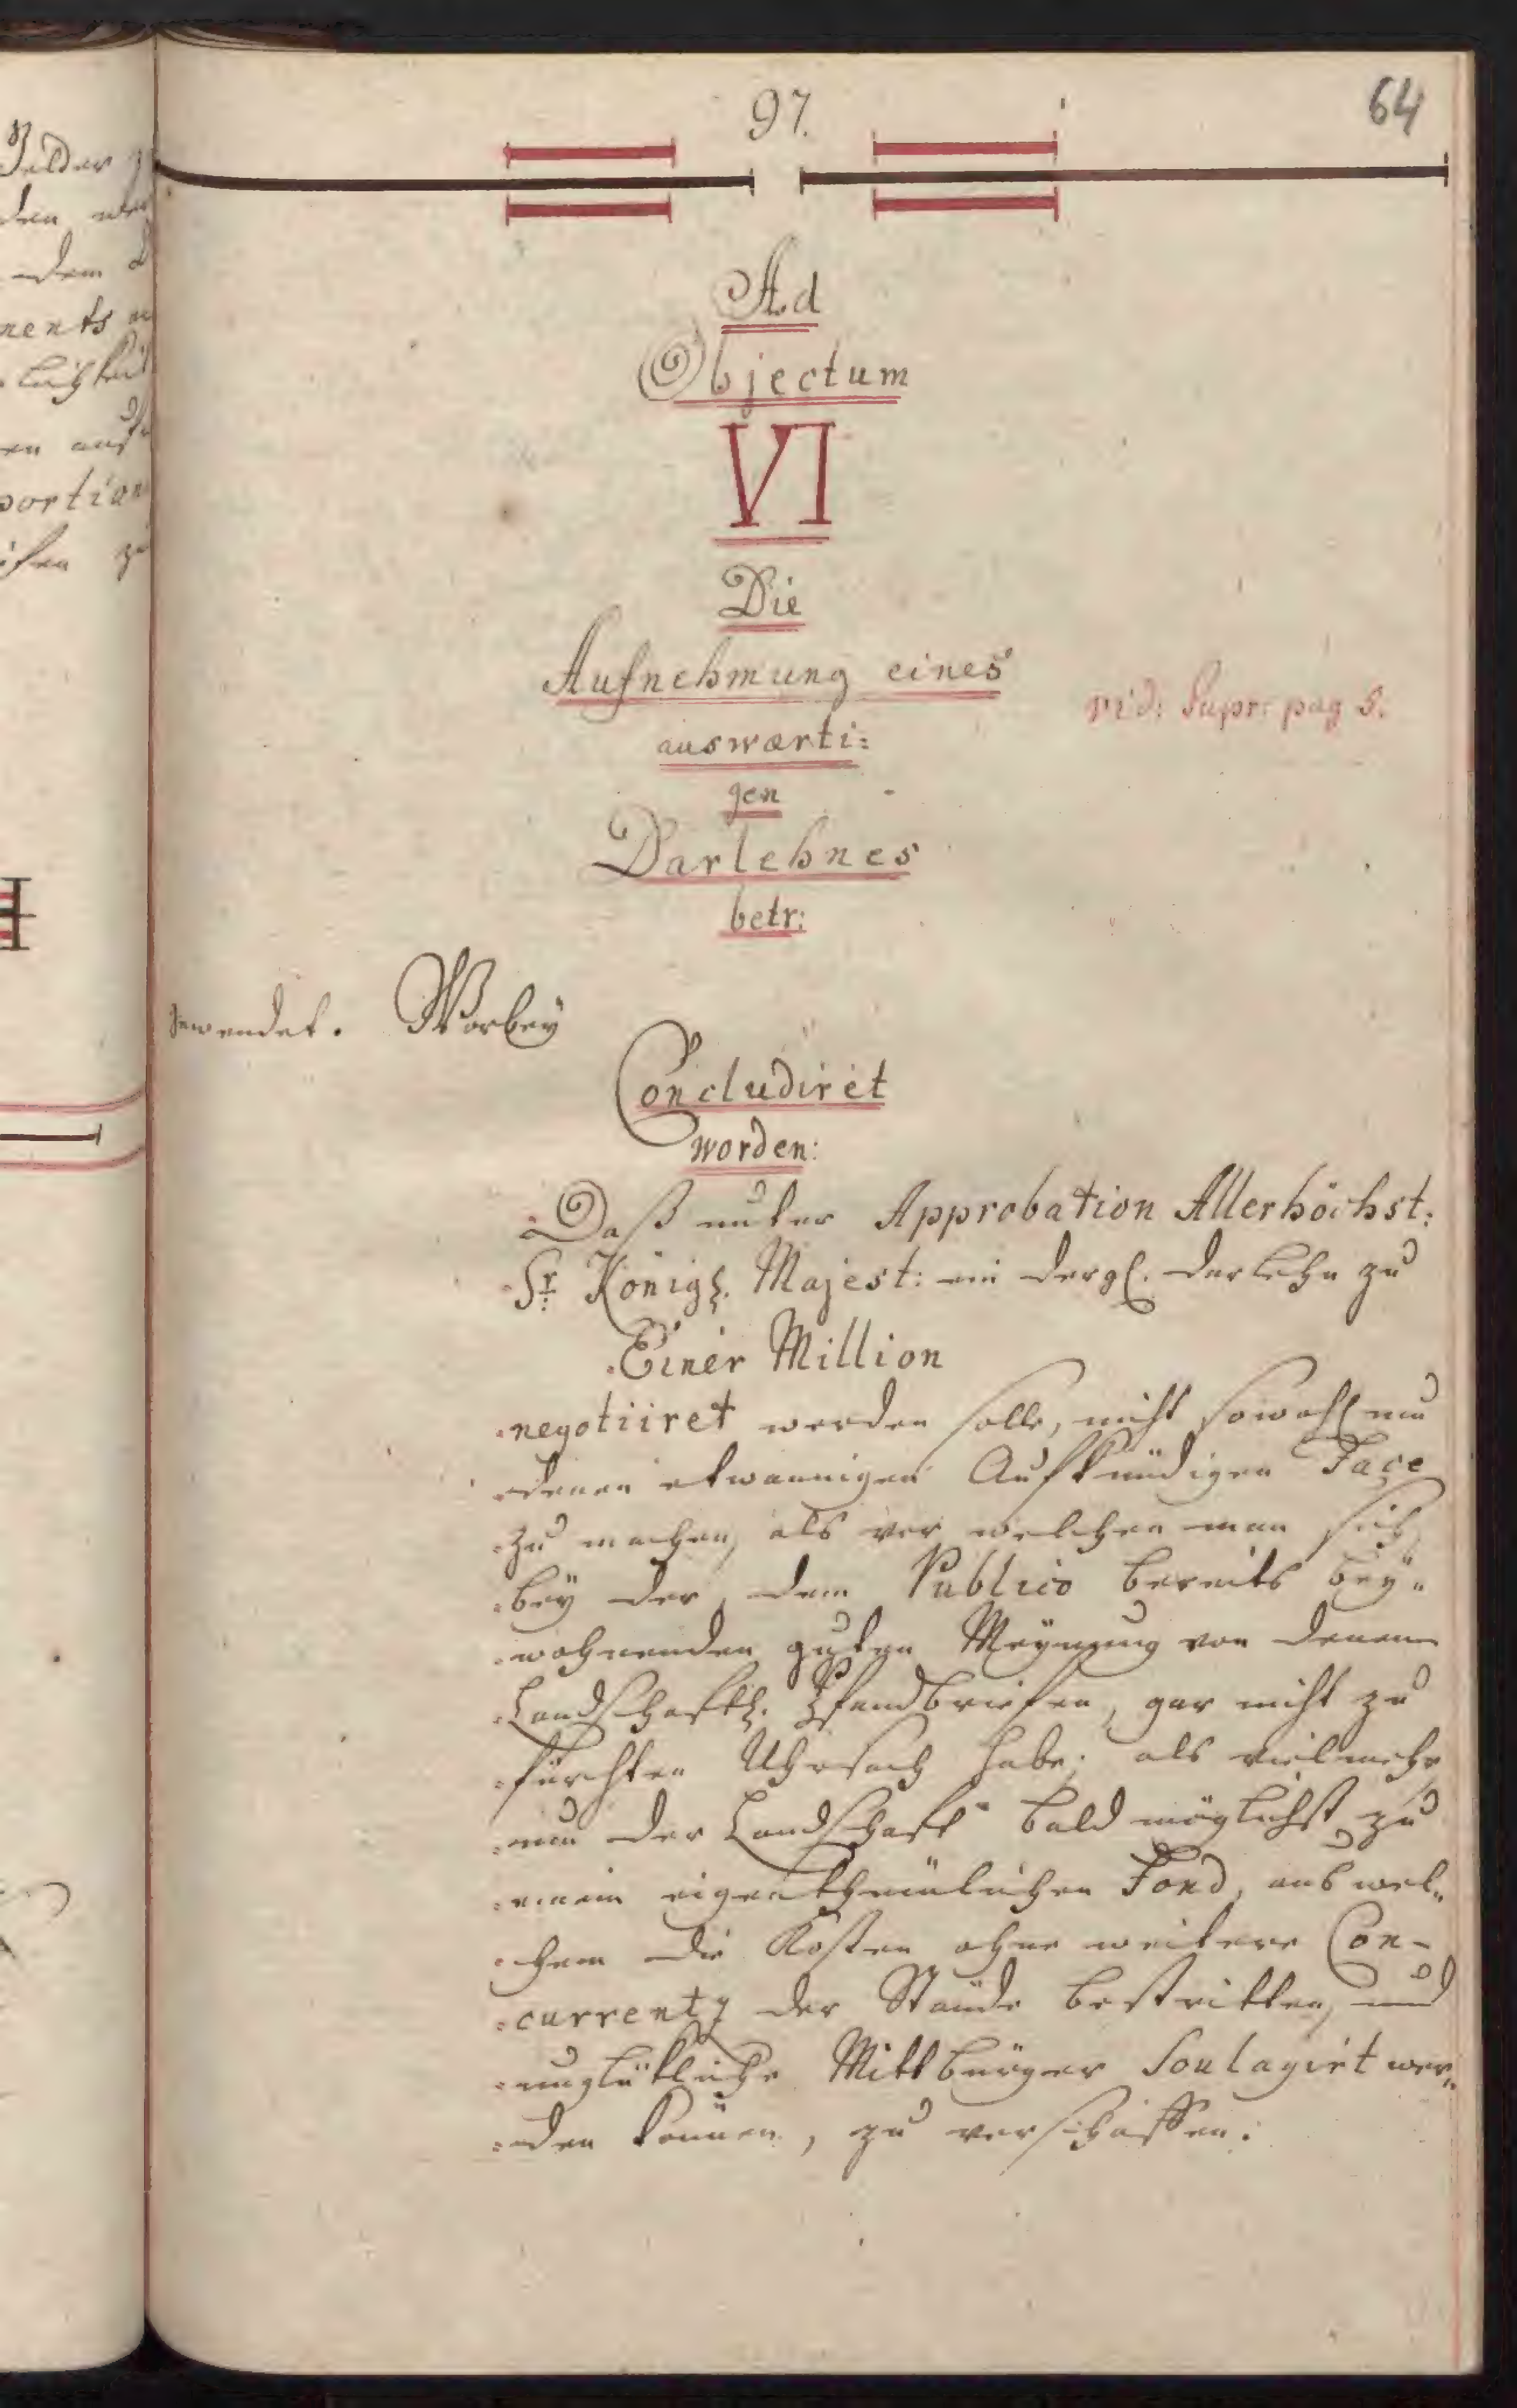 97.
64
Ad
Objectum
VI
Die
Aufnehmung eines
vid: Supr: pag 5.
auswærti:
gen
Darlehnes
betr:
bewendet. Worbey
Concludiret
worden:
Daß unter Approbation Allerhöchst:
Sr. Königl. Majest: ein dergl. Darlehn zu
Einer Million
negotiiret werden solle, nicht sowohl um
denen etwannigen Aufkündigen Façe
zu machen, als vor welchen man sich
bey der, dem Publico bereits bey„
wohnenden guten Meynung von denen
Landschaftl. Pfandbriefen, gar nicht zu
fürchten Uhrsach habe; als vielmehr
um der Landschaft bald möglichst zu
einem eigenthümlichen Fond, aus wel„
chem die Kosten ohne weitere Con-
currentz der Stände bestritten, und
unglükliche Mittbürger Soulagirt wer„
den können, zu verschaffen.
Felder
den
dem
nents
en auf
portion
zu